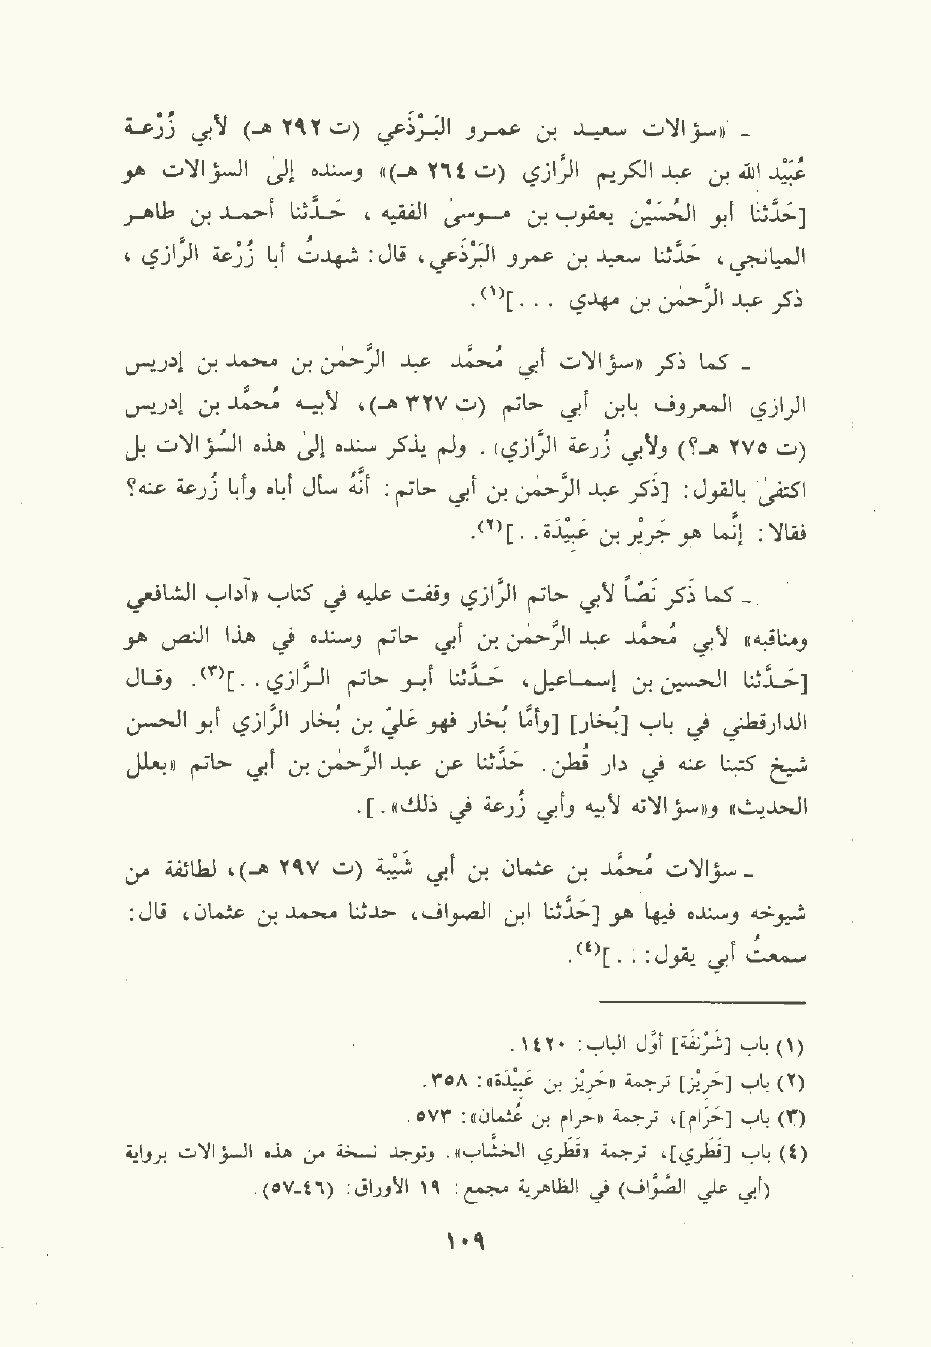 - «سؤالات سعيد بن عمرو البَرْذَعي (ت ٢٩٢ هـ) لأبي زُرْعة
عُبَيْد الله بن عبد الكريم الرَّازي (ت ٢٦٤ هـ)» وسنده إلى السؤالات هو
[حَدَّثنا أبو الحُسَيْن يعقوب بن موسى الفقيه ، حَدَّثنا أحمد بن طاهر
الميانجي، حَدَّثنا سعيد بن عمرو البَرْذَعي، قال: شهدتُ أبا زُرْعة الرَّازي ،
ذكر عبد الرَّحمٰن بن مهدي . . .](١).
- كما ذكر «سؤالات أبي مُحمَّد عبد الرَّحمٰن بن محمد بن إدريس
الرازي المعروف بابن أبي حاتم (ت ٣٢٧ هـ)، لأبيه مُحمَّد بن إدريس
(ت ٢٧٥ هـ؟) ولأبي زُرعة الرَّازي). ولم يذكر سنده إلى هذه السُّؤالات بل
اكتفىٰ بالقول: [ذكر عبد الرَّحمٰن بن أبي حاتم: أنَّهُ سأل أباه وأبا زُرعة عنه؟
فقالا: إنَّما هو جَرِيْر بن عَبِيْدَة. .](٢).
- كما ذَكر نَصّاً لأبي حاتم الرَّازي وقفت عليه في كتاب «آداب الشافعي
ومناقبه» لأبي مُحمَّد عبد الرَّحمٰن بن أبي حاتم وسنده في هذا النص هو
[حَدَّثنا الحسين بن إسماعيل، حَدَّثنا أبو حاتم الرَّازي. .](٣). وقال
الدارقطني في باب [بُخار] [وأمَّا بُخار فهو عَليّ بن بُخار الرَّازي أبو الحسن
شيخ كتبنا عنه في دار قُطن. حَدَّثنا عن عبد الرَّحمٰن بن أبي حاتم «بعلل
الحديث» و«سؤالاته لأبيه وأبي زُرعة في ذلك».].
- سؤالات مُحمَّد بن عثمان بن أبي شَيْبة (ت ٢٩٧ هـ)، لطائفة من
شيوخه وسنده فيها هو [حَدَّثنا ابن الصواف، حدثنا محمد بن عثمان، قال:
سمعتُ أبي يقول: . . .](٤).
(١) باب [شَرْنَفَة] أوَّل الباب: ١٤٢٠.
(٢) باب [حَرِيْز] ترجمة «حَرِيْز بن عَبِيْدَة»: ٣٥٨.
(٣) باب [حَرام]، ترجمة «حرام بن عُثمان»: ٥٧٣.
(٤) باب [قَطَري]، ترجمة «قَطَري الخشَّاب». وتوجد نسخة من هذه السؤالات برواية
(أبي علي الصَّوَّاف) في الظاهرية مجمع: ١٩ الأوراق: (٤٦-٥٧).
١٠٩